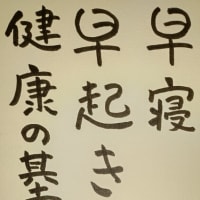 早寝
早起き
健康の基